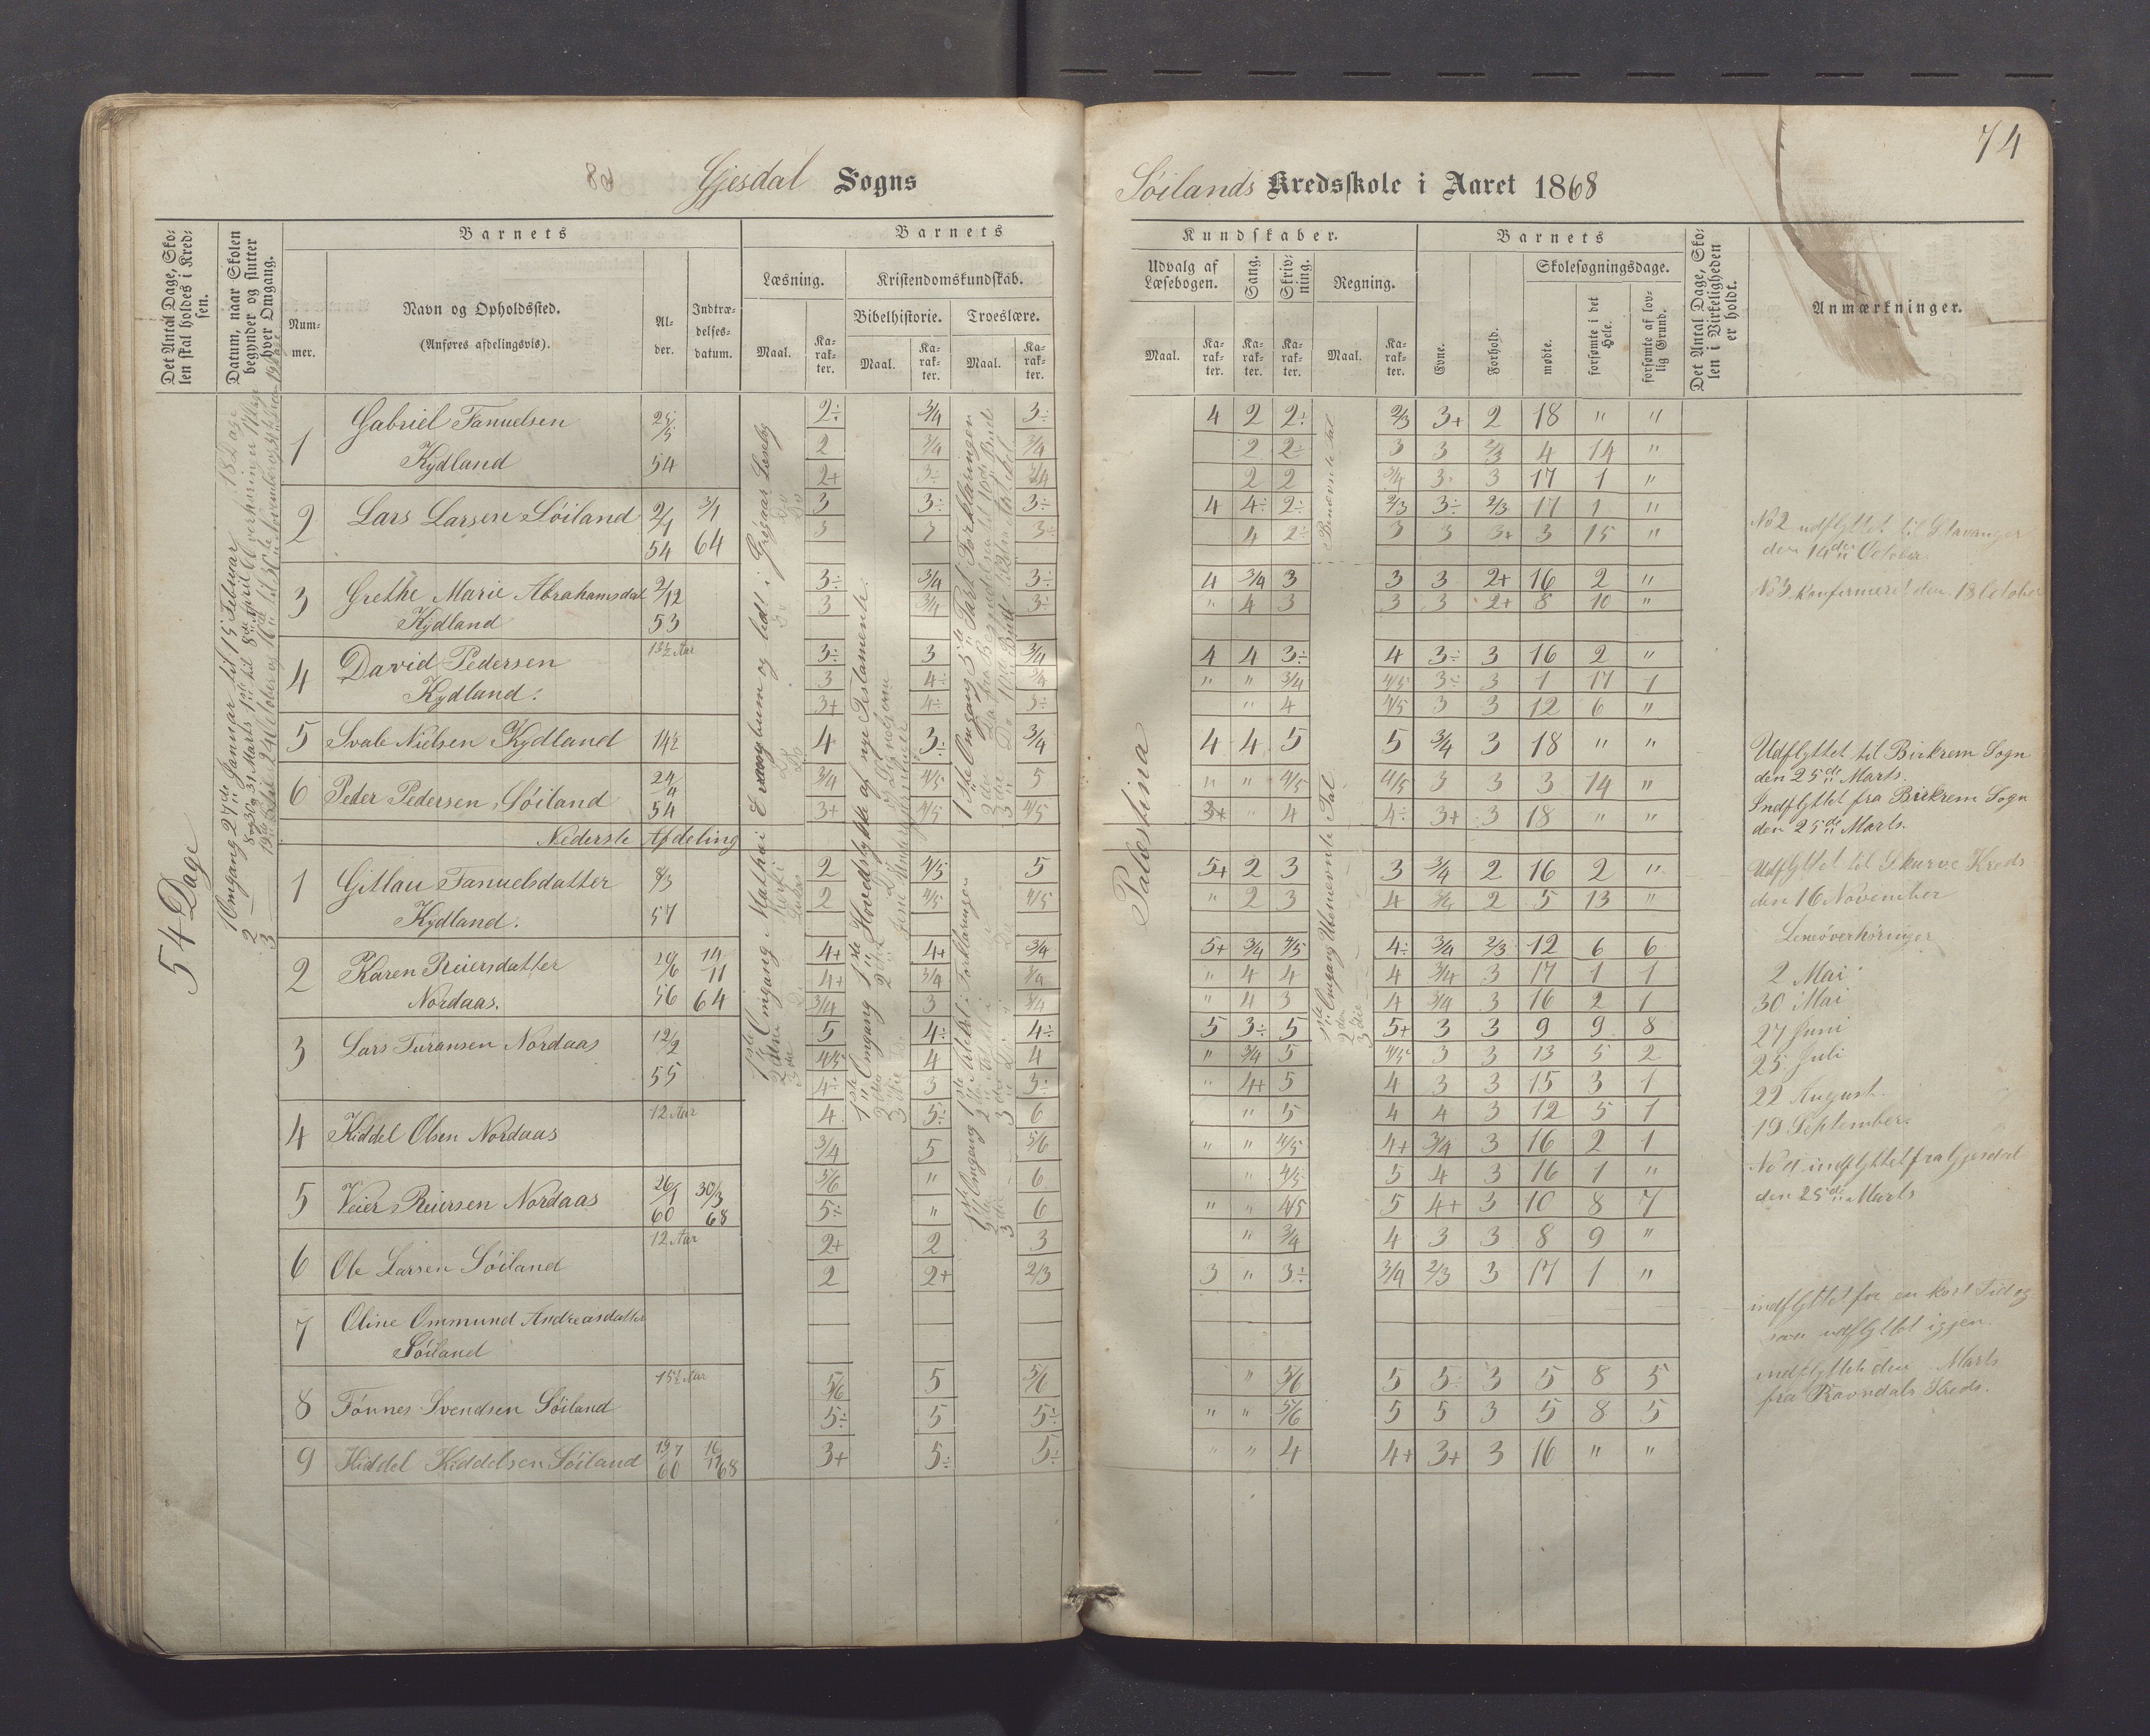 74
Gjesdal Sogns
Söilands Kredsskole i Aaret 1868
Det Antal Dage, Sko-
len skal holdes i Kred-
sen.
Datum, naar Skolen
begynder og slutter
hver Omgang.
Barnets
Num-
mer.
Navn og Opholdssted.
(Anføres afdelingsvis).
Al-
der.
Indtræ-
delses-
datum.
Barnets
Læsning.
Maal.
Ka-
rak-
ter.
Kristendomskundskab.
Bibelhistorie.
Maal.
Ka-
rak-
ter.
Troeslære.
Maal.
Ka-
rak-
ter.
Kundskaber.
Udvalg af
Læsebogen.
Maal.
Ka-
rak-
ter.
Sang.
Ka-
rak-
ter.
Skriv-
ning.
Ka-
rak-
ter.
Regning.
Maal.
Ka-
rak-
ter.
Barnets
Evne.
Forhold.
Skolesøgningsdage.
mødte.
forsømte i det
Hele.
forsømte af lov-
lig Grund.
Det Antal Dage, Sko-
len i Virkeligheden
er holdt.
Anmærkninger.
54 Dage
1 Omgang 27de Januar til 15 Februar
Palestina
1 Gabriel Tanuelsen
Kydland
25/5 54
2÷ 3/4 3÷ 4 2 2÷ 2/3 3+ 2 18 " "
2 3/4 3/4 2 2÷ 3 3 2/3 4 14 "
2+ 3÷ 3/4 2 2 3/4 3 3 17 1 "
2 Lars Larsen Söiland
2/1 54 3/1 64
3 3÷ 3÷ 4 4÷ 2÷ 2/3 3÷ 2/3 17 1 "
3 3 3÷ 4 2÷ 3 3 3+ 3 15 "
No 2 udflyttet til Stavanger
den 14de October.
3 Grethe Marie Abrahamsdat
Kydland
2/12 53
3÷ 3/4 3÷ 4 3/4 3 3 3 2+ 16 2 "
3 3/4 3÷ " 4 3 3 3 2+ 8 10 "
No 3 konfirmeret den 18 October
4 David Pedersen
Kydland.
13½ Aar
3÷ 3 3/4 4 4 3÷ 4 3÷ 3 16 2 "
3 4÷ 3/4 " " 3/4 4/5 3÷ 3 1 17 1
3+ 4÷ 3÷ " 4 4/5 3 3 12 6 "
5 Svale Nielsen Kydland 14½
4 3÷ 3/4 4 4 5 5 3/4 3 18 " "
Udflyttet til Birkrem Sogn
den 25de Marts.
6 Peder Pedersen Söiland
24/4 54
3/4 4/5 5 " " 4/5 4/5 3 3 3 14 "
3+ 4/5 4/5 3+ " 4 4÷ 3+ 3 18 " "
Indflyttet fra Birkrem Sogn
den 25de Marts.
Nederste Afdeling
1 Gitlau Tanuelsdatter
Kydland.
8/3 57
2 4/5 5 5+ 2 3 3 3/4 2 16 2 "
2 4/5 4/5 " 2 3 4 3/4 2 5 13 "
Udflyttet til Skurve Kreds
den 16 November
2 Karen Reiersdatter
Nordaas.
20/6 56 14/11 64
4+ 4+ 3/4 5+ 3/4 4/5 4÷ 3/4 2/3 12 6 6
4+ 3/4 3/4 " 4 4 4 3/4 3 17 1 1
3/4 3 3/4 " 4 3 4 3/4 3 16 2 1
3 Lars Turansen Nordaas
12/2 55
5 4÷ 4÷ 5 3÷ 5 5+ 3 3 9 9 8
4/5 4 4 " 3/4 5 4/5 3 3 13 5 2
4÷ 3 3÷ " 4+ 5 4 3 3 15 3 1
Læseöverhöringer
2 Mai
30 Mai
27 Juni
25 Juli
22 August.
19 September.
4 Kiddel Olsen Nordaas
12 Aar
4 5÷ 6 " 5 4 4 3 12 5 1
3/4 5 5/6 " " 4/5 4+ 3/4 3 16 2 1
No 4 indflyttet fra Gjesdal
den 25de Marts
5 Veier Reiersen Nordaas
26/1 60 30/3 68
5/6 " 6 " 4/5 5 4 3 16 1 "
5÷ " 6 " " 4/5 5 4+ 3 10 8 7
6 Ole Larsen Söiland
12 Aar
2+ 2 3 " 3/4 4 3 3 8 9 "
2 2+ 2/3 3 " 3÷ 3/4 2/3 3 17 1 "
7 Oline Ommund Andreasdatter
Söiland
indflyttet for en kort Tid og
saa udflyttet igjen.
8 Tönnes Svendsen Söiland
15½ Aar
5/6 5 5/6 " 5/6 5 5÷ 3 5 8 5
5÷ 5 5÷ " " 5/6 5 5 3 5 8 5
indflyttet den Marts
fra Ravndals Kreds.
9 Kiddel Kiddelsen Söiland
19/7 60 16/11 68
3+ 5÷ 5÷ " " 4 4+ 3+ 3 16 " "